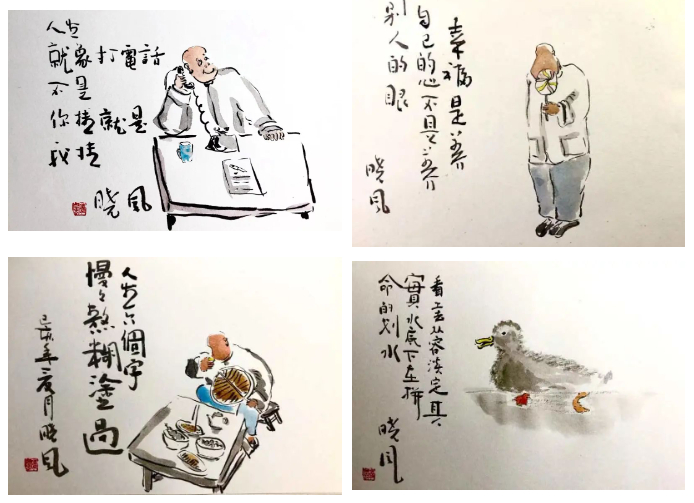 人生
就象打電話
不是
你挂就是
我挂
晓风
幸福是养
自己的心不是养
别人的眼
晓风
人生六個字
慢々熬糊塗過
己亥年夏月晓风
看上去从容淡定其
實水底下在拼
命的划水
晓风